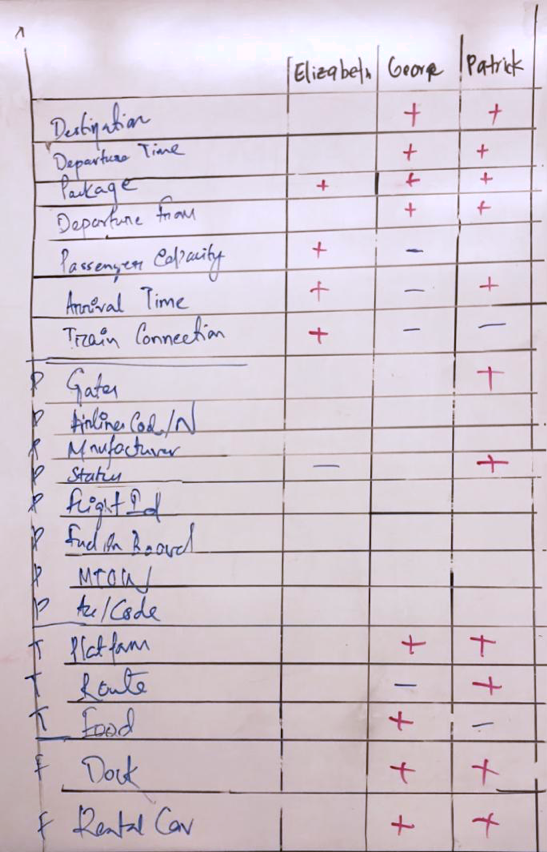 Elizabeth George Patrick
Destination + +
Departure Time + +
Package + + +
Departure from + +
Passenger Capacity + -
Arrival Time + - +
Train Connection + - -
P Gates +
P Airlines Cod/N
P Mnufacturer
P Status - +
P Flight Id
P Fuel On Board
P MTOW
P Au/Code
T Platform + +
T Route - +
T Food + -
F Dock + +
F Rental Car + +